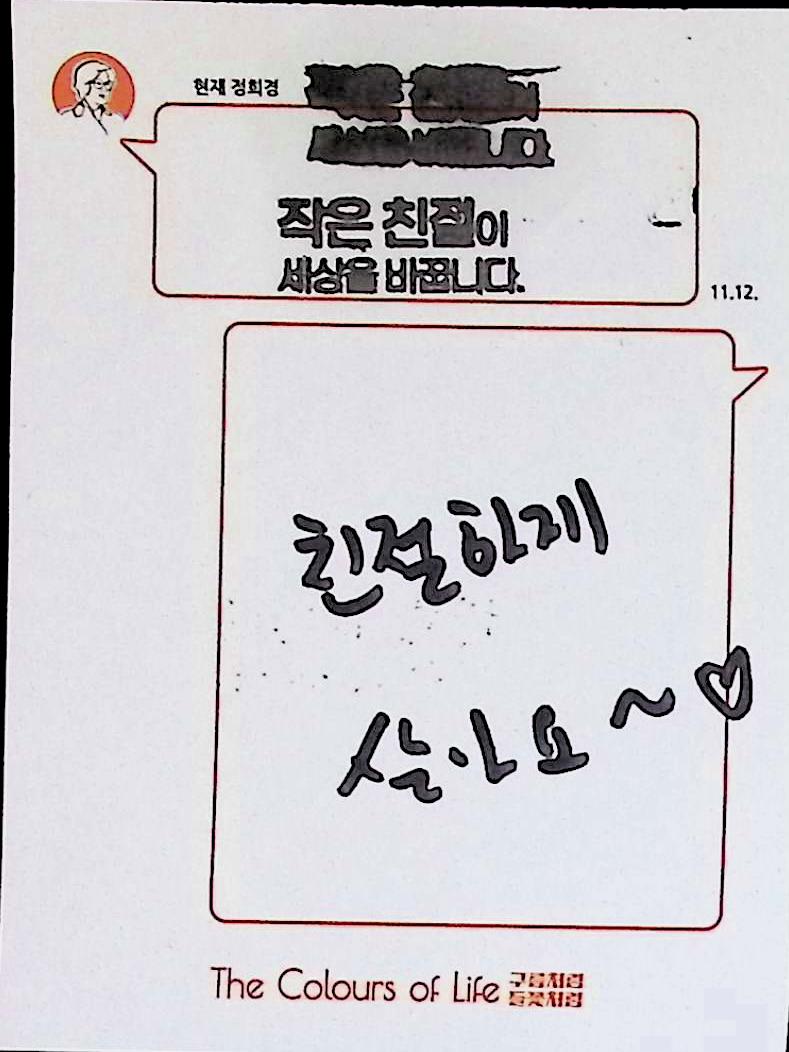 현재 정희경
작은 친절이
세상을 바꿉니다.
11.12.
친절하게
살아요~♡
The Colours of Life 구름처럼
들꽃처럼